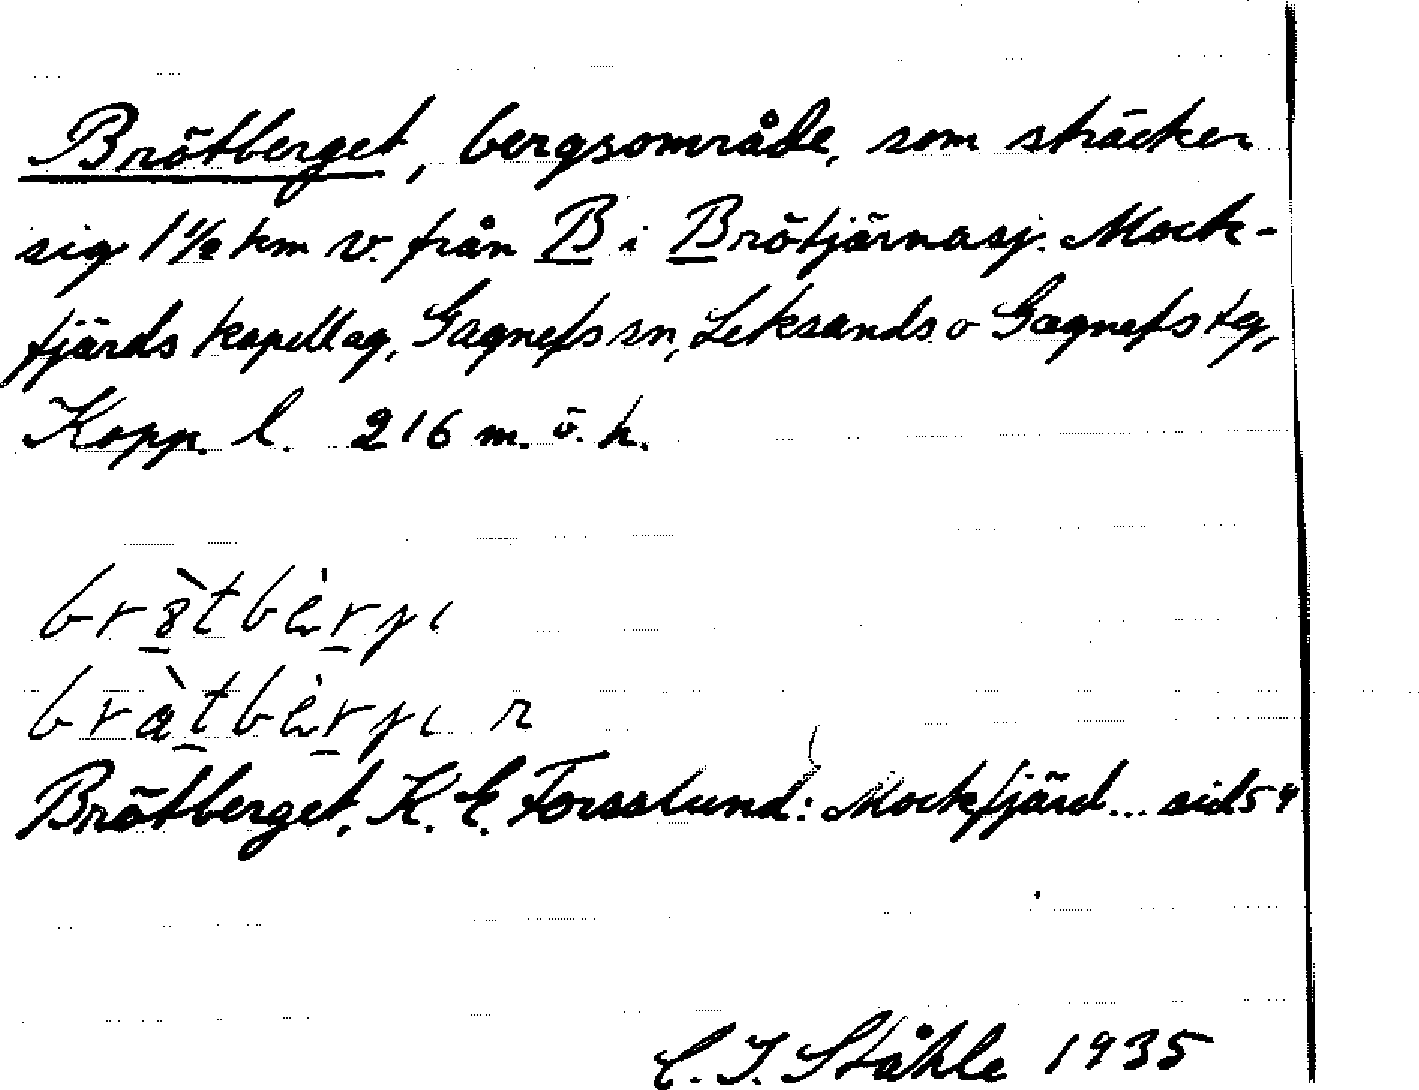 Brötberget, bergsområde, som sträcker
sig 1 1/2 km v. från B i Brötjärnasj. Mock-
fjärds kapellag, Gagnefs sn, Leksands o Gagnefs tg,
Kopp. l. 216 m. ö. h.
Brötberget, K. E. Forsslund: Mockfjärd... sid 54
C. I. Ståhle 1935